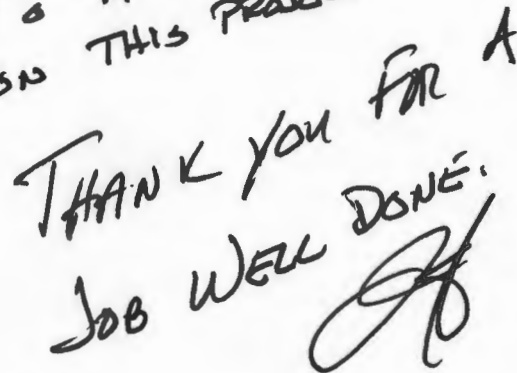 ON THIS
THANK YOU FOR A
JOB WELL DONE.